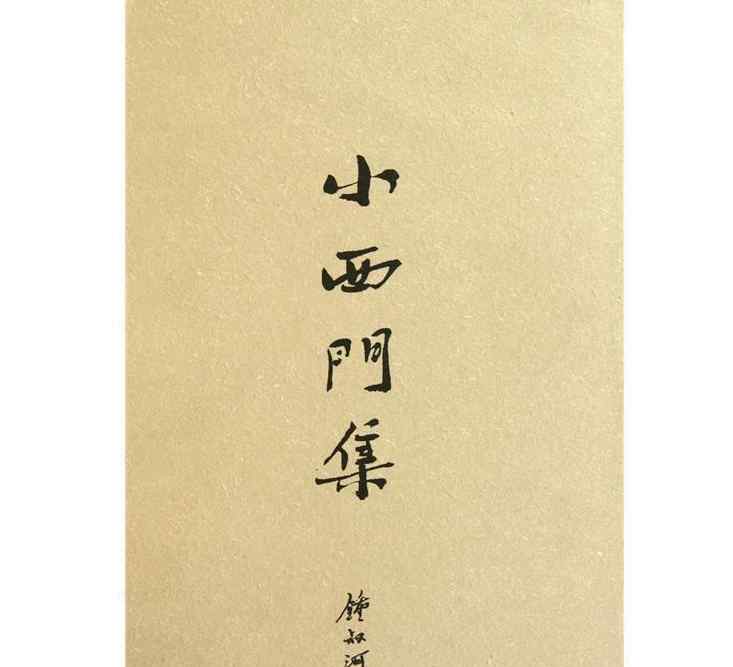 小西門集
鐘叔河